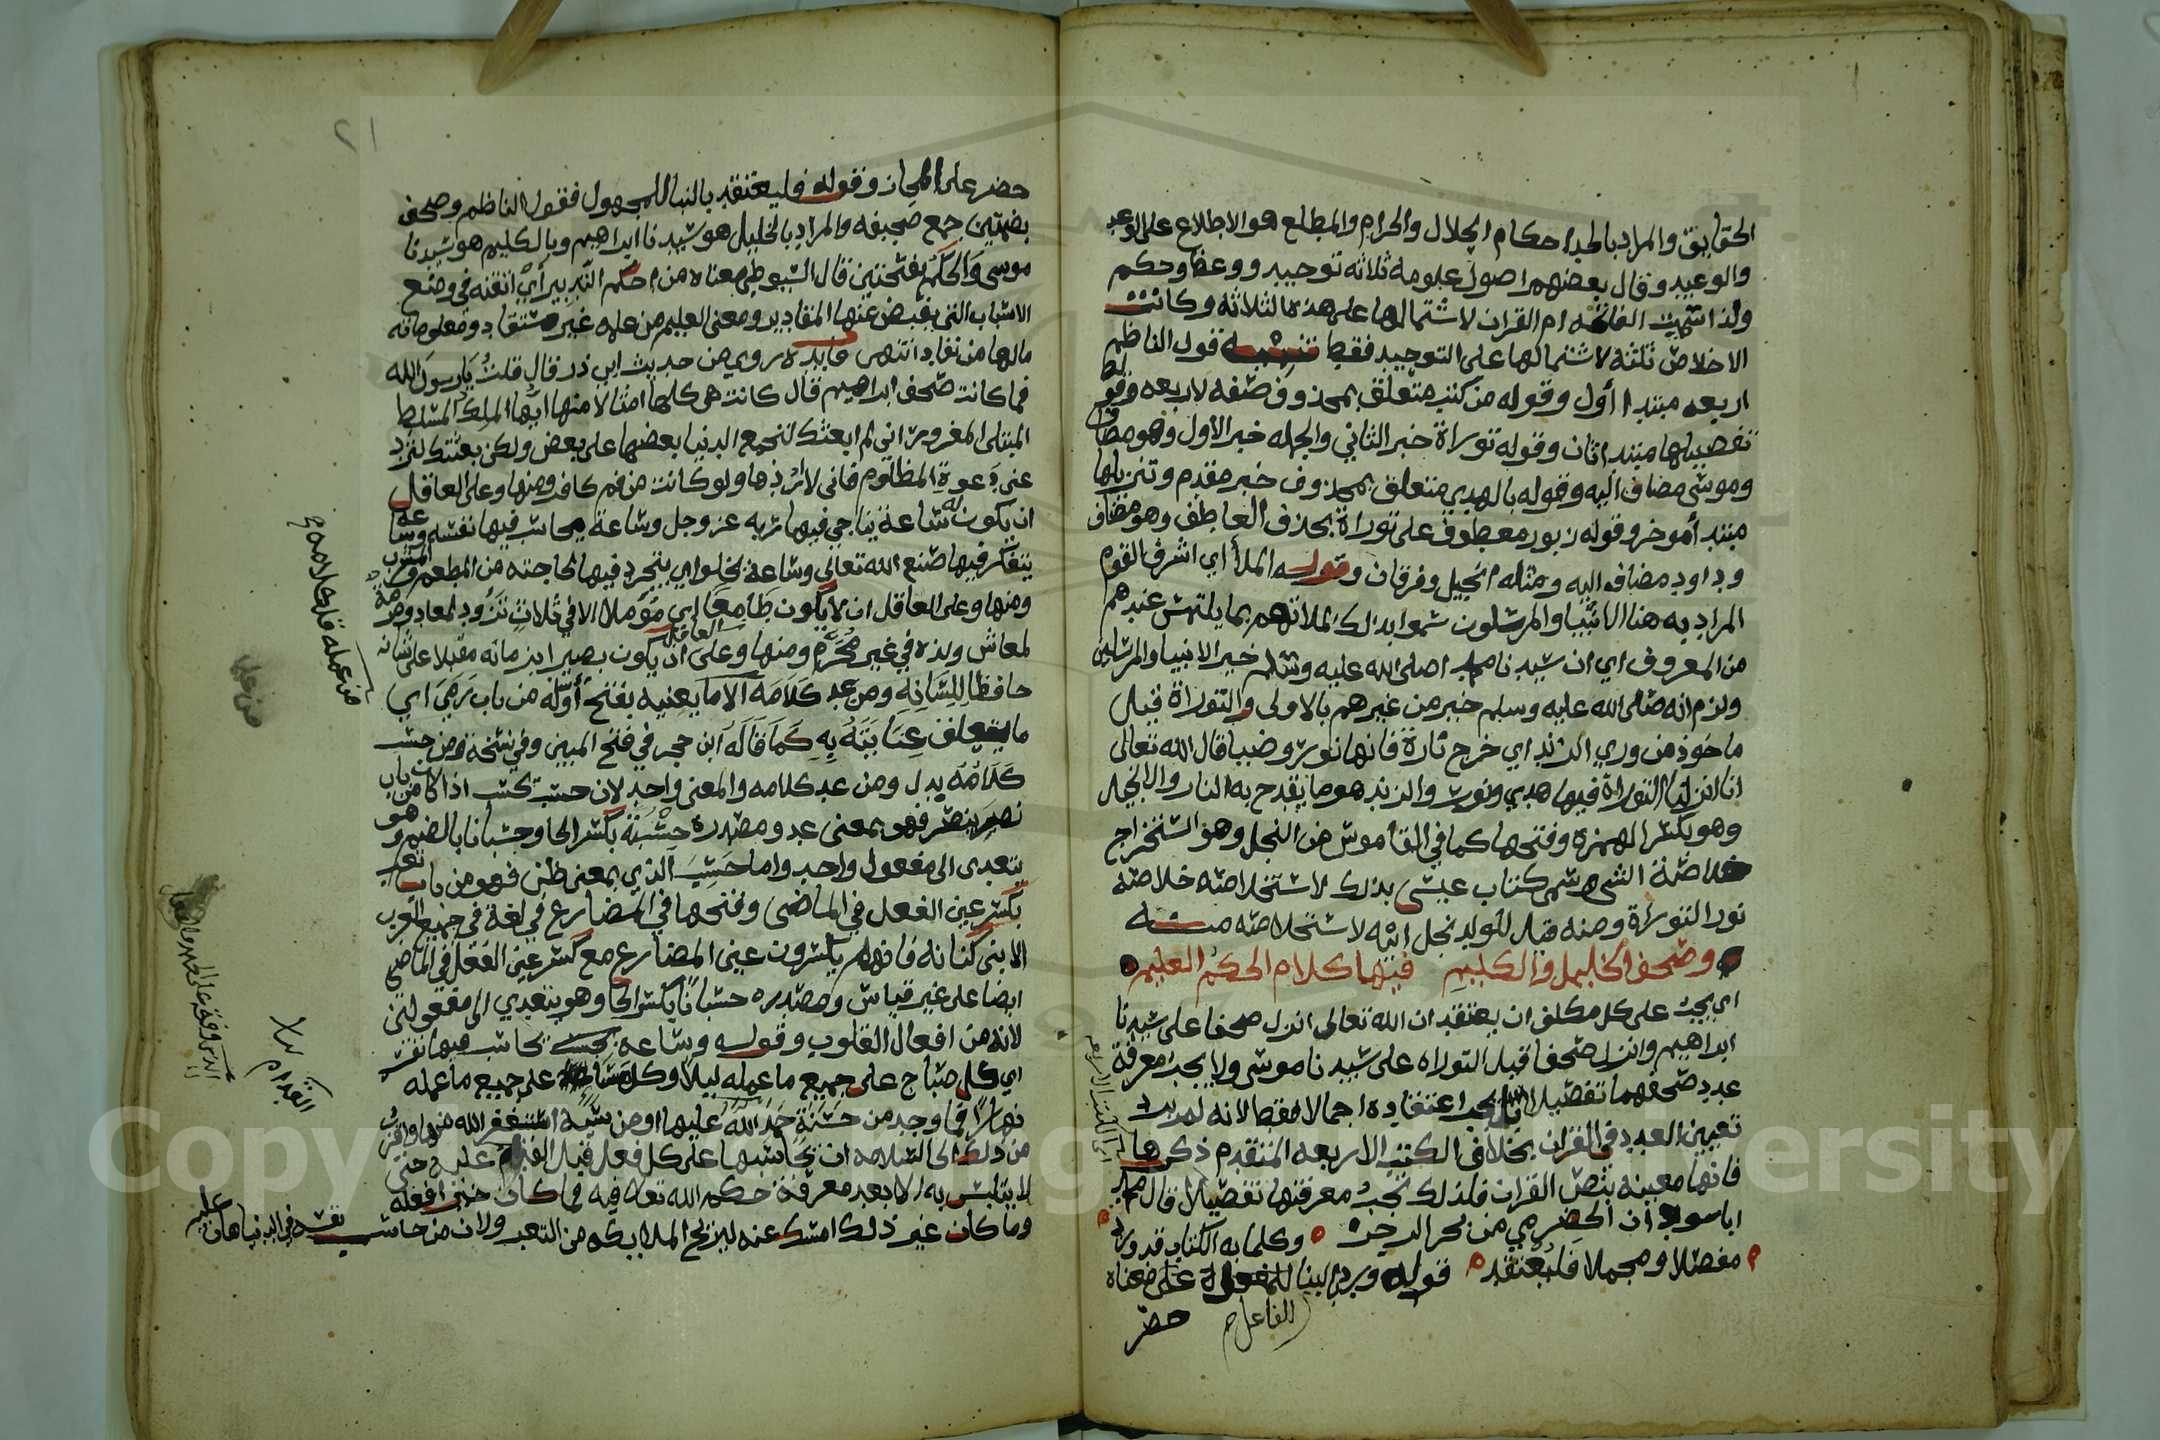 الحقايق والمراد بالحد احكام الحلال والحرام والمطلع هو الاطلاع على الوعد
والوعيد وقال بعضهم اصول علومه ثلاثة توحيد ووعظ وحكم
ولذا سميت الفاتحة ام القران لاشتمالها على هذه الثلاثة وكانت
الاخلاص ثلثه لاشتمالها على التوحيد فقط تنبيه قول الناظم
اربعة مبتدا أول وقوله من كتب متعلق بمحذوف صفة لاربعة وقوله
تفصيلها مبتدا ثان وقوله توراة خبر الثاني والجملة خبر الاول وهو مضاف
وموسى مضاف اليه وقوله بالهدي متعلق بمحذوف خبر مقدم وتنزيلها
مبتدأ موخر وقوله زبور معطوف على توراة بحذف العاطف وهو مضاف
وداود مضاف اليه ومثله انجيل وفرقان وقوله الملأ اي اشرف القوم
المراد به هنا الانبيا والمرسلون سموا بذلك لملاتهم بما يلتمس عندهم
من المعروف اي ان سيدنا محمد صلى الله عليه وسلم خير الانبيا والمرسلين
ولزم انه صلى الله عليه وسلم خير من غيرهم بالاولى والتوراة قيل
ماخوذ من وري الزند اي خرج ناره فانها نور وضيا قال الله تعالى
انا انزلنا التوراة فيها هدي ونور والزند هو ما يقدح به النار والانجيل
وهو بكسر الهمزة وفتحها كما في القاموس من النجل وهو استخراج
خلاصة الشي سمي كتاب عيسى بذلك لاستخلاصه خلاصة
نور التوراة ومنه قيل للولد نجل ابيه لاستخلاصه منه
وصحف الخليل والكليم فيها كلام الحكم العليم
اي يجب على كل مكلف ان يعتقد ان الله تعالى انزل صحفا على سيدنا
ابراهيم وانزل صحفا قبل التوراه على سيدنا موسى ولا يجب معرفة
عدد صحفهما تفصيلا بل يجب اعتقاده اجمالا فقط لانه لم يرد
تعيين العدد في القران بخلاف الكتب الاربعه المتقدم ذكرها
فانها معينه بنص القران فلذلك تجب معرفتها تفصيلا قال محمد
اباسودان الحضرمي من بحر الرجز وكلما به الكتاب قد ورد
مفصلا ومجملا فليعتقد قوله ورد بالبنا للمفعول على معناه
للفاعل
حضر
حضر على المجاز وقوله فليعتقد بالبنا للمجهول فقول الناظم وصحف
بضمتين جمع صحيفه والمراد بالخليل هو سيدنا ابراهيم وبالكليم هو سيدنا
موسى والحكم بفتحتين قال السيوطي معناه من احكم التدبير أي اتقنه في وضع
الاسباب التي يفيض عنها المقادير ومعنى العليم من علمه غير مستفاد ومعلوماته
مالها من نفاد انتهى فايدة روي من حديث ابي ذر قال قلت يا رسول الله
فما كانت صحف ابراهيم قال كانت هي كلها امثالا منها ايها الملك المسلط
المبتلى المغرور اني لم ابعثك لتجمع الدنيا بعضها على بعض ولكن بعثتك لترد
عني دعوة المظلوم فاني لا اردها ولو كانت من فم كافر ومنها وعلى العاقل
ان يكون له ساعة يناجي فيها ربه عز وجل وساعة يحاسب فيها نفسه وساعة
يتفكر فيها صنع الله تعالى وساعة يخلو اي يتجرد فيها لحاجته من المطعم والمشرب
ومنها وعلى العاقل ان لا يكون طامعا اي مؤملا الا في ثلاث تزود لمعاد ومرمة
لمعاش ولذه في غير محرم ومنها وعلى العاقل ان يكون بصيرا بزمانه مقبلا على شانه
حافظا للسانه ومن عد كلامه الا ما يعنيه بفتح أوله من باب رمي اي
ما يتعلق عنايته به كما قاله ابن حجر في فتح المبين وفي نسخة ومن حسب
كلامه بدل ومن عد كلامه والمعنى واحد لان حسب يحسب اذا كان من باب
نصر ينصر فهو بمعنى عد ومصدره حسبة بكسر الحا وحسبانا بالضم وهو
يتعدى الى مفعول واحد واما حسب الذي بمعنى ظن فهو من باب تعب
بكسر عين الفعل في الماضي وفتحها في المضارع في لغة في جميع العرب
الا بني كنانه فانهم يكسرون عين المضارع مع كسر عين الفعل في الماضي
ايضا على غير قياس ومصدره حسبانا بكسر الحا وهو يتعدي الى مفعولين
لانه من افعال القلوب وقوله وساعة يحاسب فيها نفسه
اي كل صباح على جميع ما عمله ليلا وكل مساء على جميع ما عمله
نهارا فما وجد من حسنة حمد الله عليها او من سيئة استغفر الله منها واقرب
من ذلك الى السلامه ان يحاسبها على كل فعل قبل القدام عليه حتى
لا يتلبس به الا بعد معرفة حكم الله تعالى فيه فما كان خيرا فعله
وما كان غير ذلك امسك عنه ليريح الملايكه من التعب ولان من حاسب نفسه في الدنيا هان عليه
من عمله قل كلامه